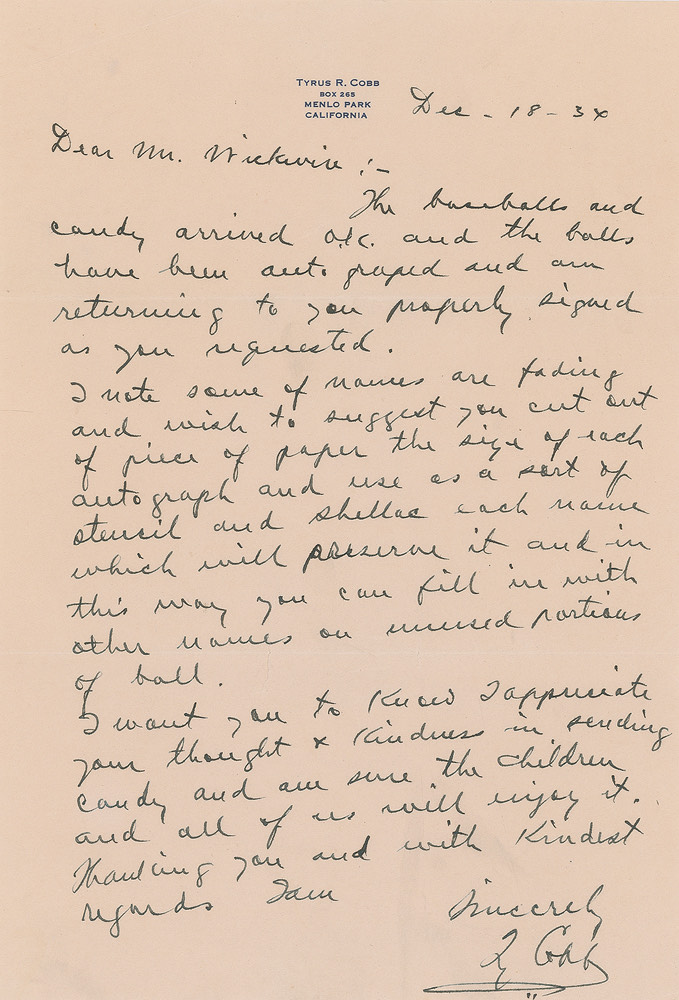 TYRUS R. COBB
BOX 265
MENLO PARK
CALIFORNIA
Dec - 18 - 34
Dear Mr. Wickwire :-
The baseballs and
candy arrived o.k. and the balls
have been autograped and am
returning to you properly signed
as you requested.
I note some of names are fading
and wish to suggest you cut out
of piece of paper the size of each
autograph and use as a sort of
stencil and shellac each name
which will preserve it and in
this way you can fill in with
other names on unused portions
of ball.
I want you to know I appreciate
your thought & kindness in sending
candy and am sure the children
and all of us will enjoy it.
Thanking you and with kindest
regards I am
Sincerely
Ty Cobb